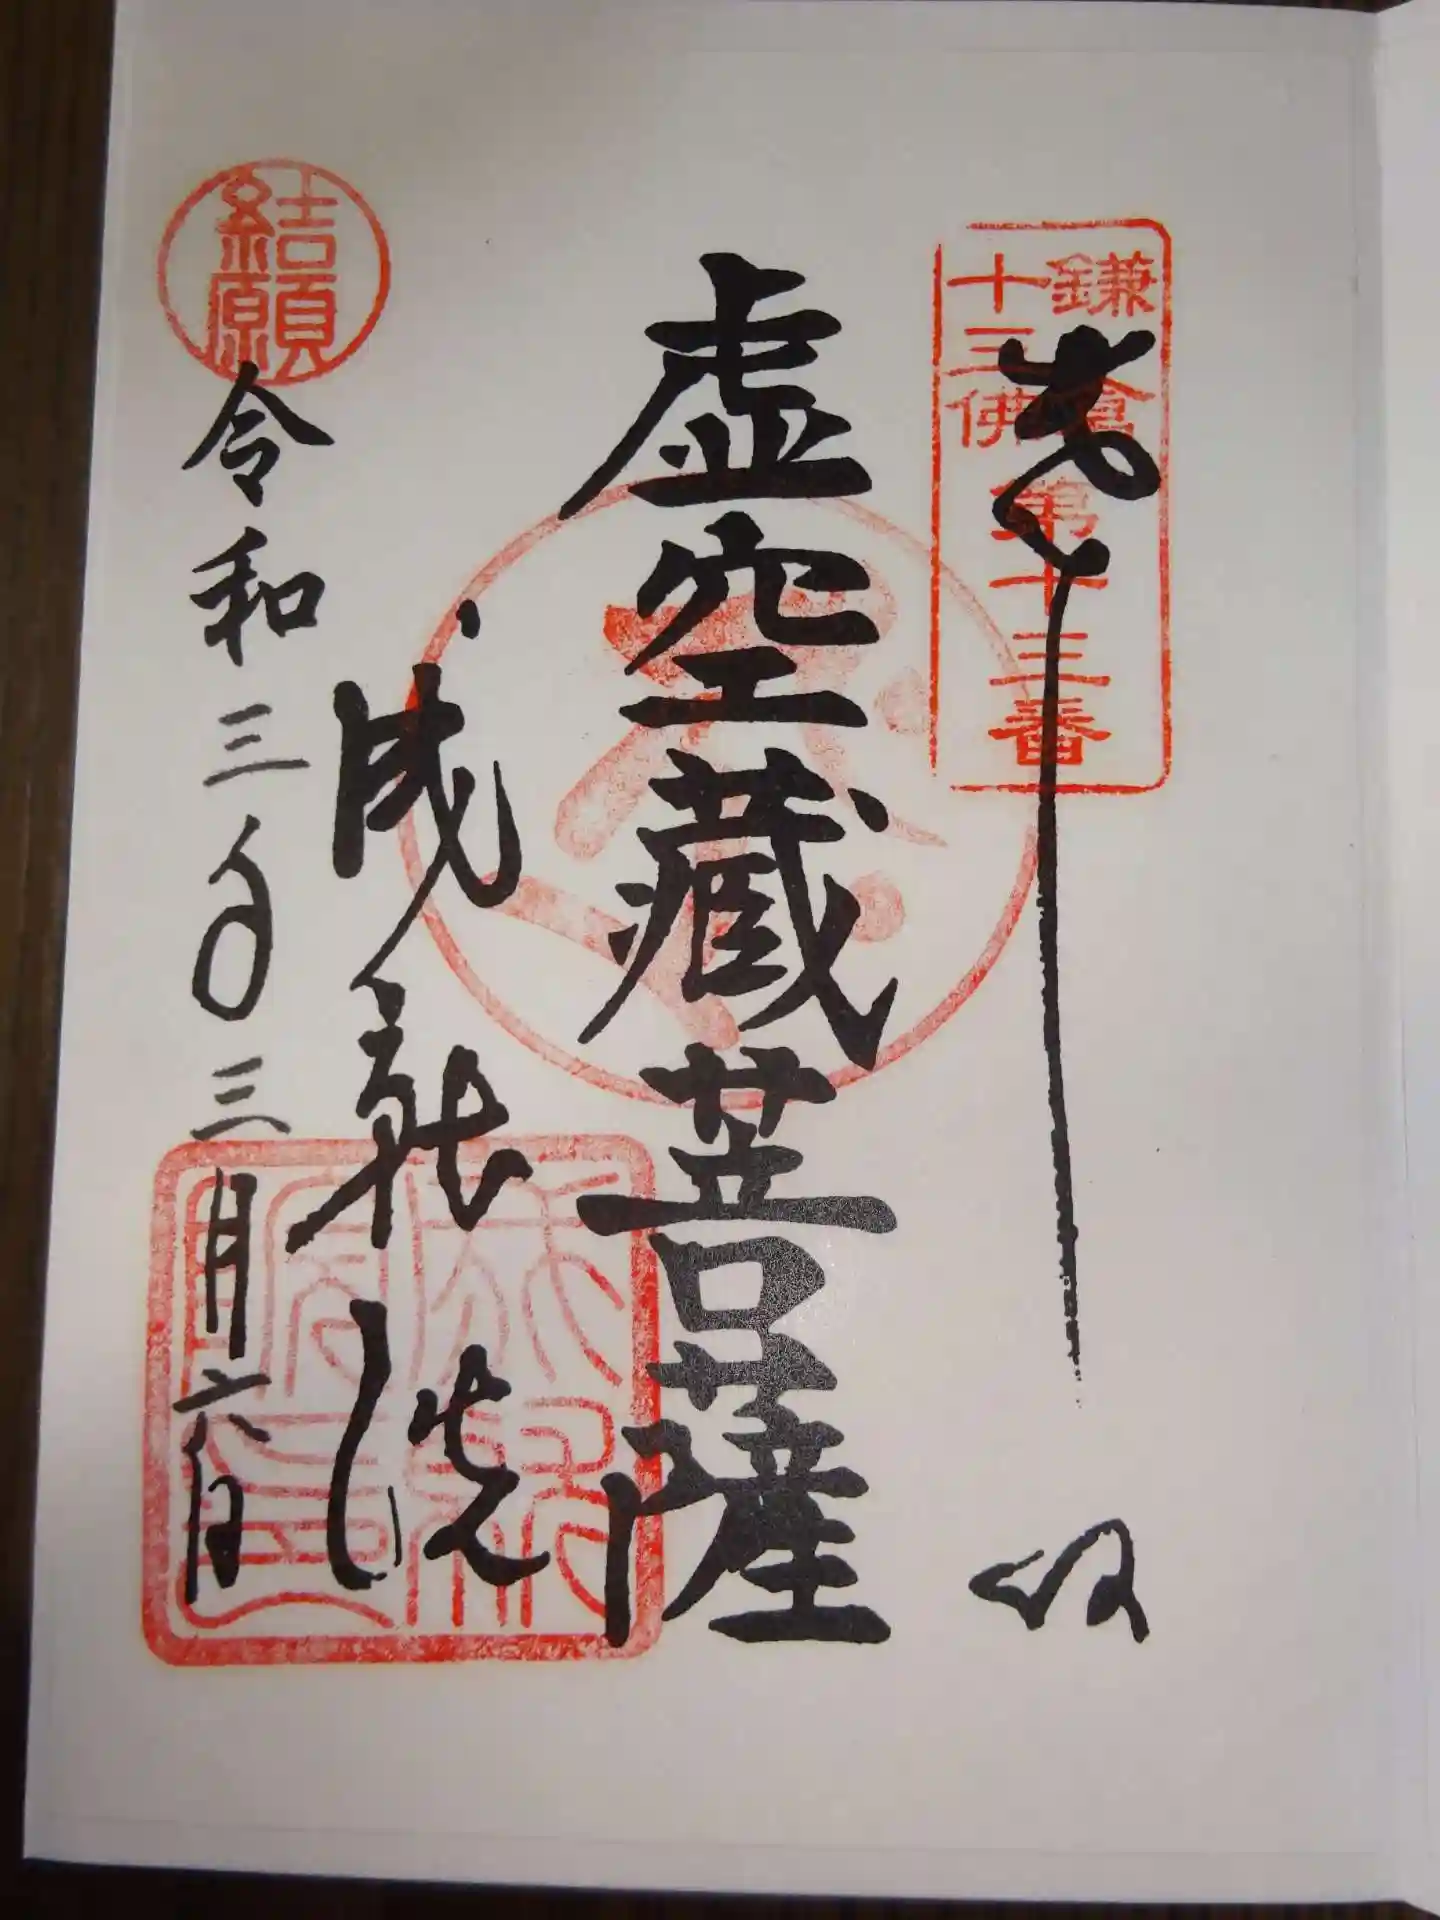 鎌倉
十三佛
第十三番
奉拝
虚空藏菩薩
成就院
結願
令和三年三月六日